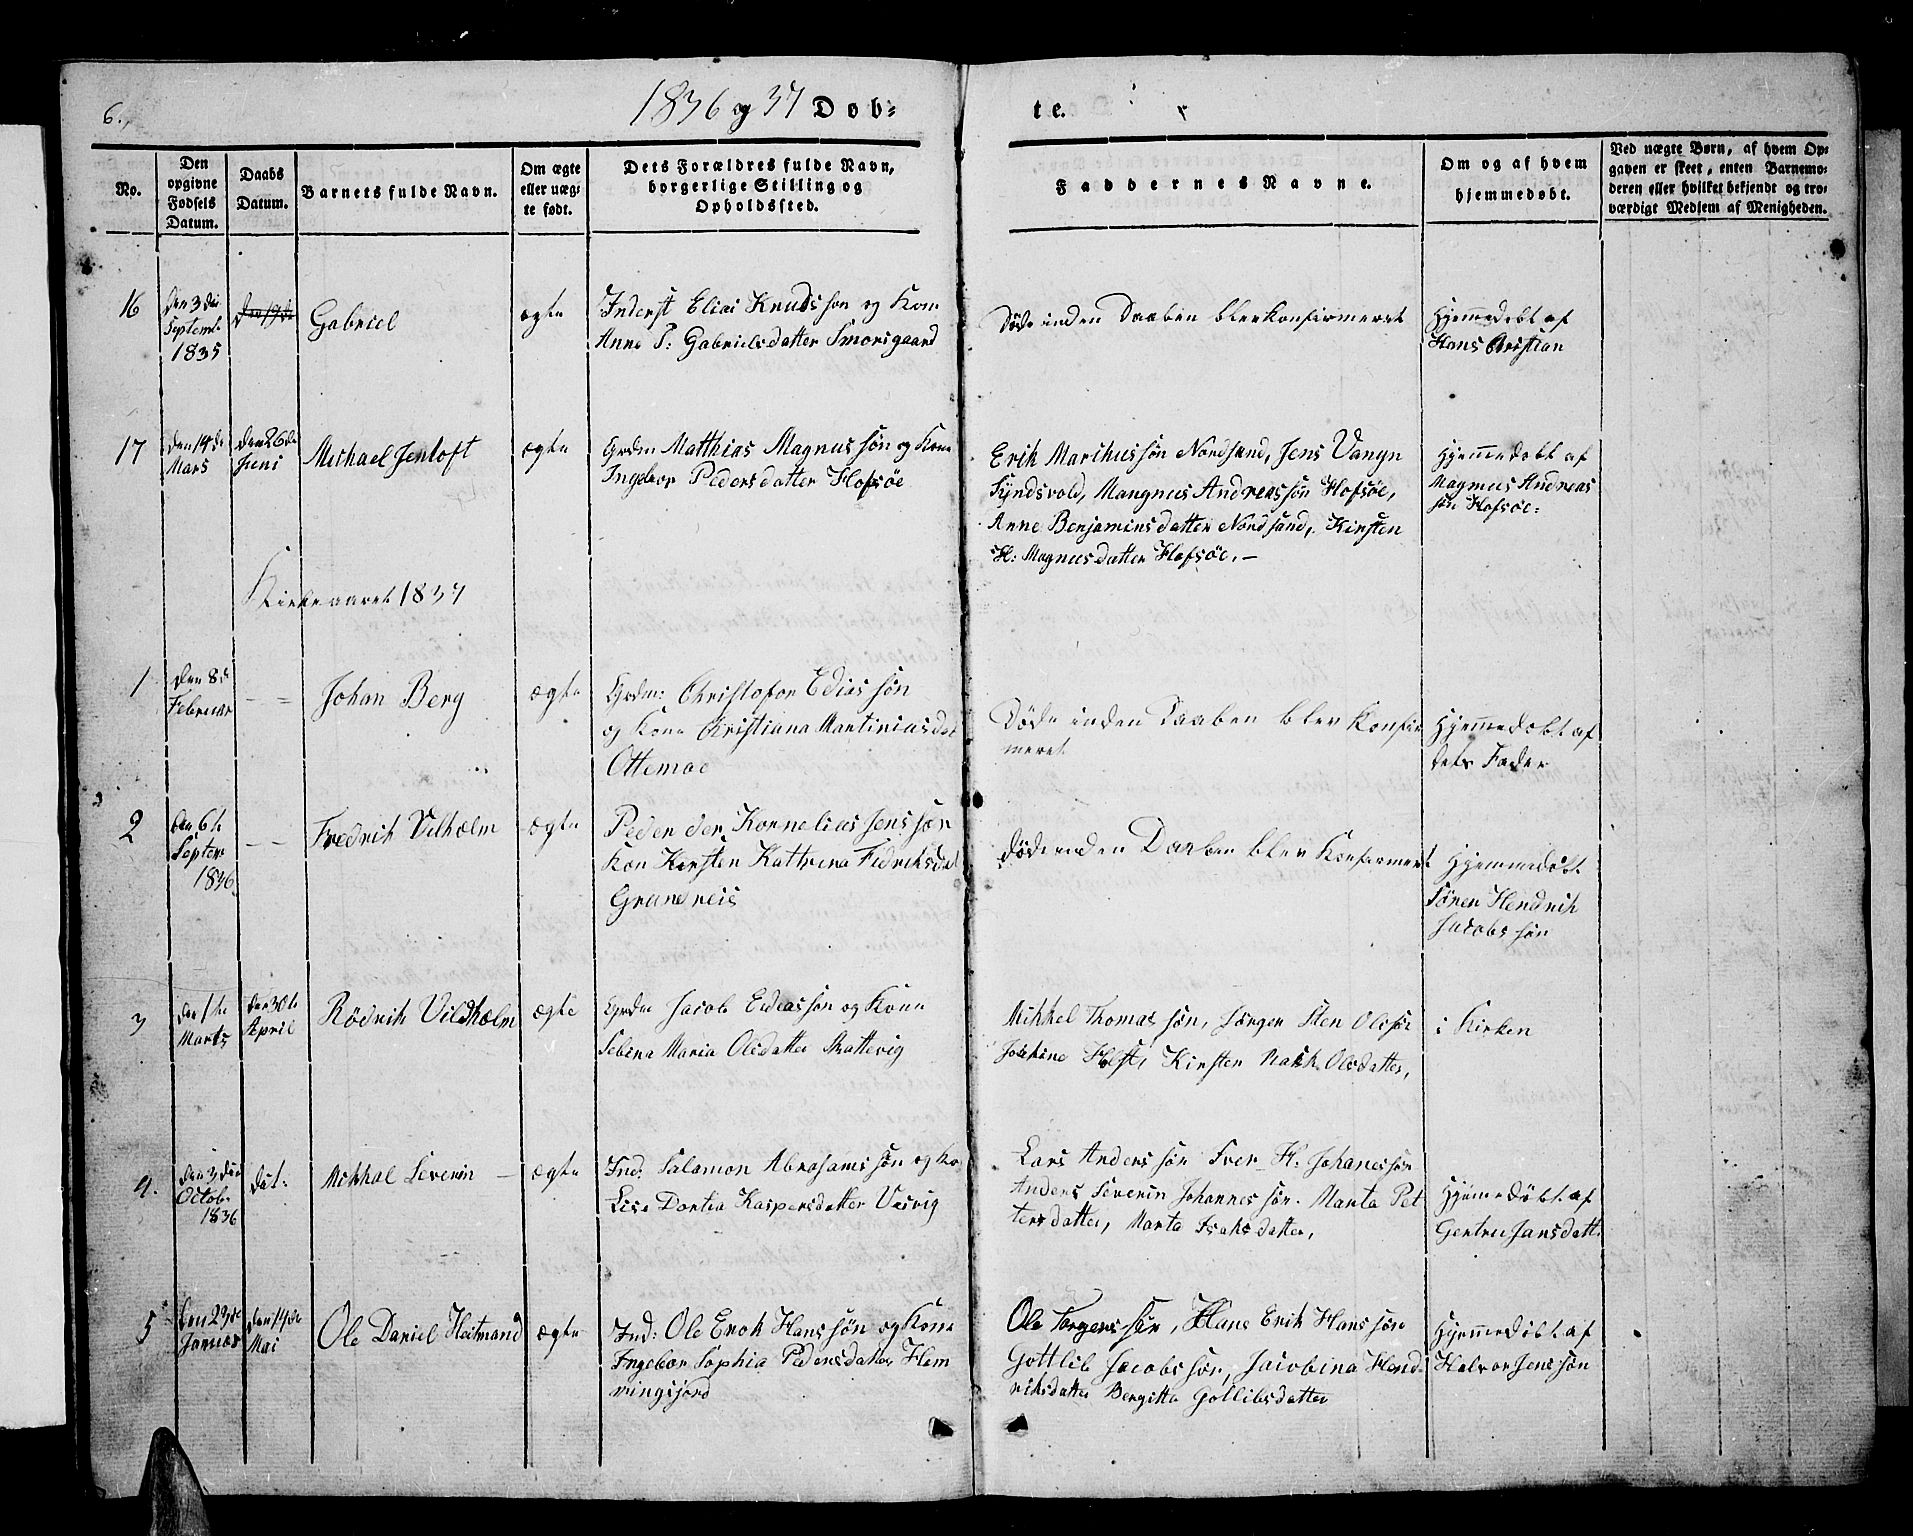 6.
1836 og 37 Døb-
te.
No.
Den opgivne Fødsels Datum.
Daabs Datum.
Barnets fulde Navn.
Om ægte eller uægte født.
Dets Forældres fulde Navn, borgerlige Stilling og Opholdssted.
Faddernes Navne.
Om og af hvem hjemmedøbt.
Ved uægte Børn, af hvem Opgaven er skeet, enten Barnemoderen eller hvilket bekjendt og troværdigt Medlem af Menigheden.
16
den 3die
Septemb.
1835
Gabriel
ægte
Inderst Elias Knudssøn og Kone
Anne P: Gabrielsdatter Smorsgaard
Døde inden Daaben blev konfirmeret
Hjemmedøbt af
Hans Christian
17
den 14de
Mars
den 26de
Juni
Michael Jentoft
ægte
Grdm Matthias Magnussøn og Kone
Ingebor Pedersdatter Hofsøe
Erik Marthussøn Nordsand, Jens Vangn
Syndsvold, Mangnus Andreassøn Hofsøe,
Anne Benjaminsdatter Nordsand, Kirsten
H: Magnusdatter Hofsøe. —
Hjemmedøbt af
Magnus Andreas
søn Hofsøe:
Kirkeaaret 1837
1
den 8de
Februar
Johan Berg
ægte
Grdm: Christofer Ediassøn
og Kone Christiana Martiniasdat
Ottemoe
Døde inden Daaben blev Konfir
meret
Hjemmedøbt af
dets Fader
2
den 6te
Septem
1836
Fredrik Vilhelm
ægte
Peder Kornelias Jenssøn
Kon Kirsten Kattrina Fedriksdat
Grundreis
Døde inden Daaben blev Konfirmert
Hjemmedøbt
Søren Hendrik
Jacobssøn
3
den 1te
Marts
den 30te
April
Rødrik Vildhelm
ægte
Grdm Jacob Edeassøn og Kone
Sebina Maria Olsdatter Skattevig
Mikkel Thomassøn, Jørgen Sten Olssøn
Josehine Holst, Kirsten Olsdatter,
i Kirken
4.
den 3die
Octob.
1836
dat:
Mikkal Severin
ægte
Ind: Salamon Abrahamssøn og Ko
Lise Dortia Kaspersdatter Veivig
Lars Anderssøn Iver H: Johanessøn
Anders Severin Johannessøn. Marta Pet
tersdatter, Marta Isaksdatter,
Hjemedøbt af
Gertru Jansdatt.
5
den 23de
Januar
den 14de
Mai
Ole Daniel Heitmand
ægte
Ind: Ole Erok Hanssøn og Kone
Ingebor Sophia Pedersdatter Hem
mingsjord
Ole Torgerssøn, Hans Erik Hanssøn
Gottlib Jacobssøn, Jacobina Hend
riksdatter Bergitta Gotlibsdatter
Hjemmedøbt af
Halvor Jenssøn